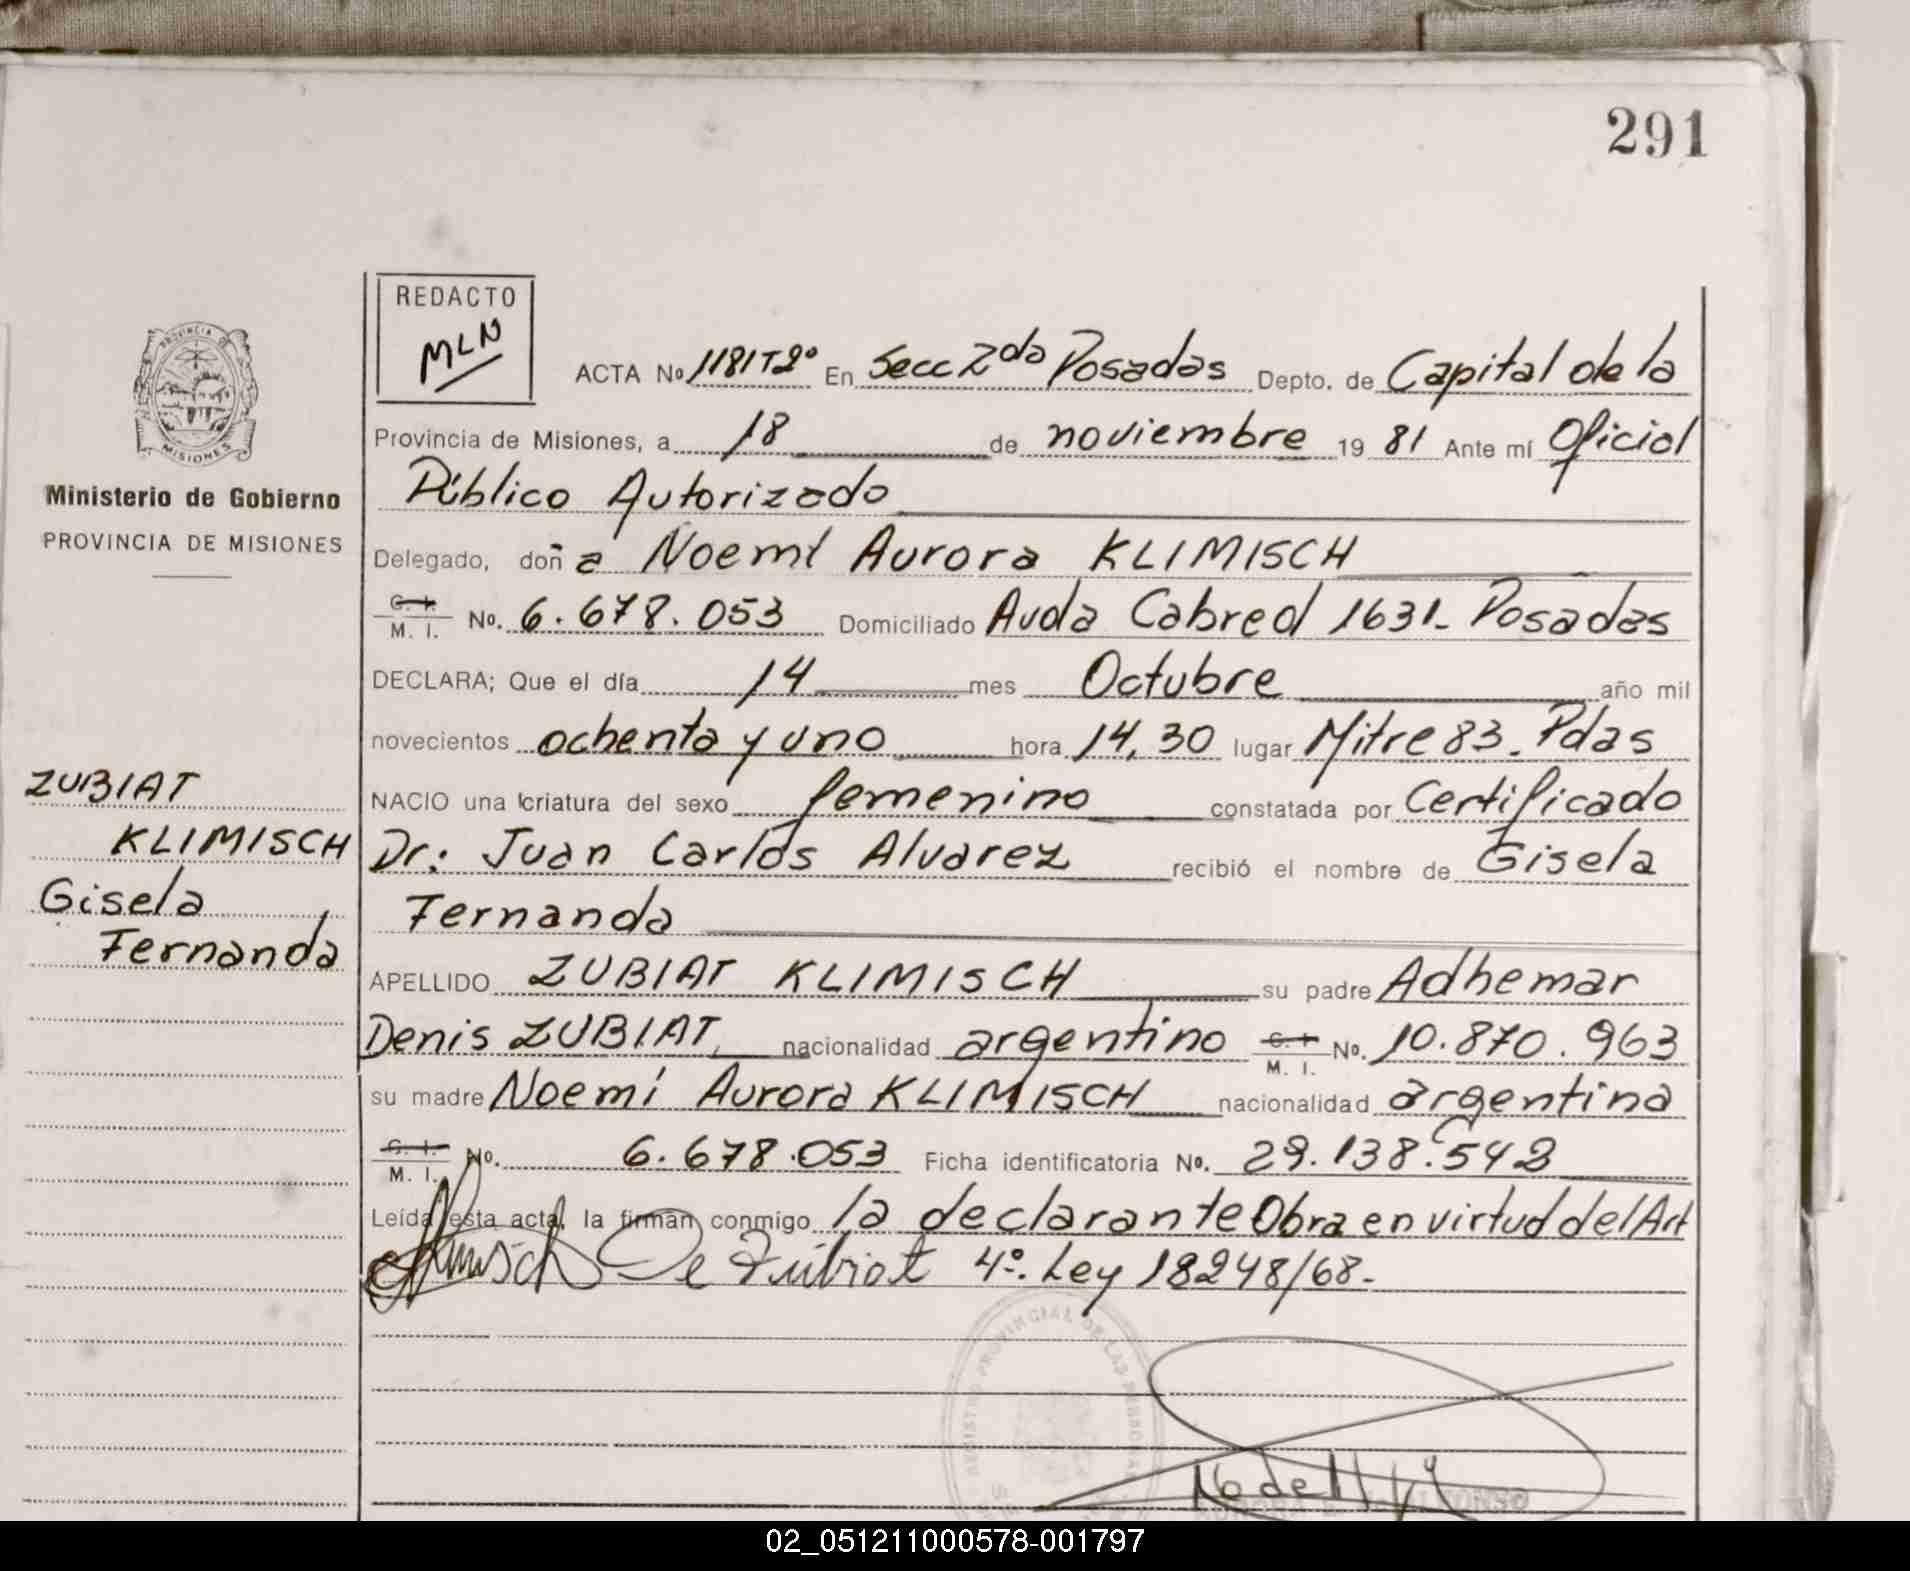 291
REDACTO
MLN
ACTA No 1181T2º En Secc 2da Posadas Depto. de Capital de la
Provincia de Misiones, a 18 de noviembre 19 81 Ante mí Oficial
Público Autorizado
Delegado, doñ a Noemí Aurora KLIMISCH
C. I.
M. I. No. 6.678.053 Domiciliado Avda Cabred 1631- Posadas
DECLARA; Que el día 14 mes Octubre año mil
novecientos ochenta y uno hora 14,30 lugar Mitre 83. Pdas
NACIO una criatura del sexo femenino constatada por Certificado
Dr: Juan Carlos Alvarez recibió el nombre de Gisela
Fernanda
APELLIDO ZUBIAT KLIMISCH su padre Adhemar
Denis ZUBIAT nacionalidad argentino C. I. M. I. No. 10.870.963
su madre Noemí Aurora KLIMISCH nacionalidad argentina
C. I.
M. I. No. 6.678.053 Ficha identificatoria No. 29.138.542
Leída esta acta, la firman conmigo la declarante Obra en virtud del Art
Klimisch De Zubiat 4º. Ley 18248/68-
PROVINCIA DE
MISIONES
Ministerio de Gobierno
PROVINCIA DE MISIONES
ZUBIAT
KLIMISCH
Gisela
Fernanda
REGISTRO PROVINCIAL DE LAS PERSONAS
02_051211000578-001797